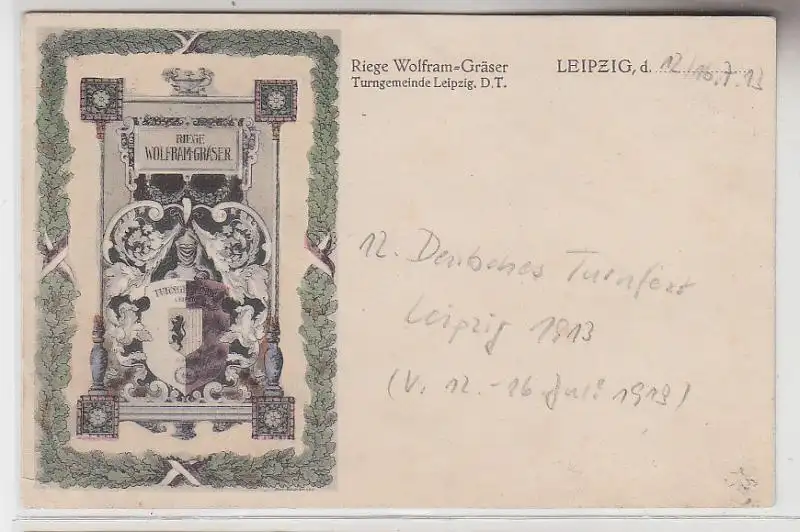 Riege Wolfram-Gräser
Turngemeinde Leipzig. D.T.
LEIPZIG, d. 12/16.7.13
RIEGE
WOLFRAM-GRÄSER.
12. Deutsches Turnfest
Leipzig 1913
(v. 12. - 16. Juli 1913)